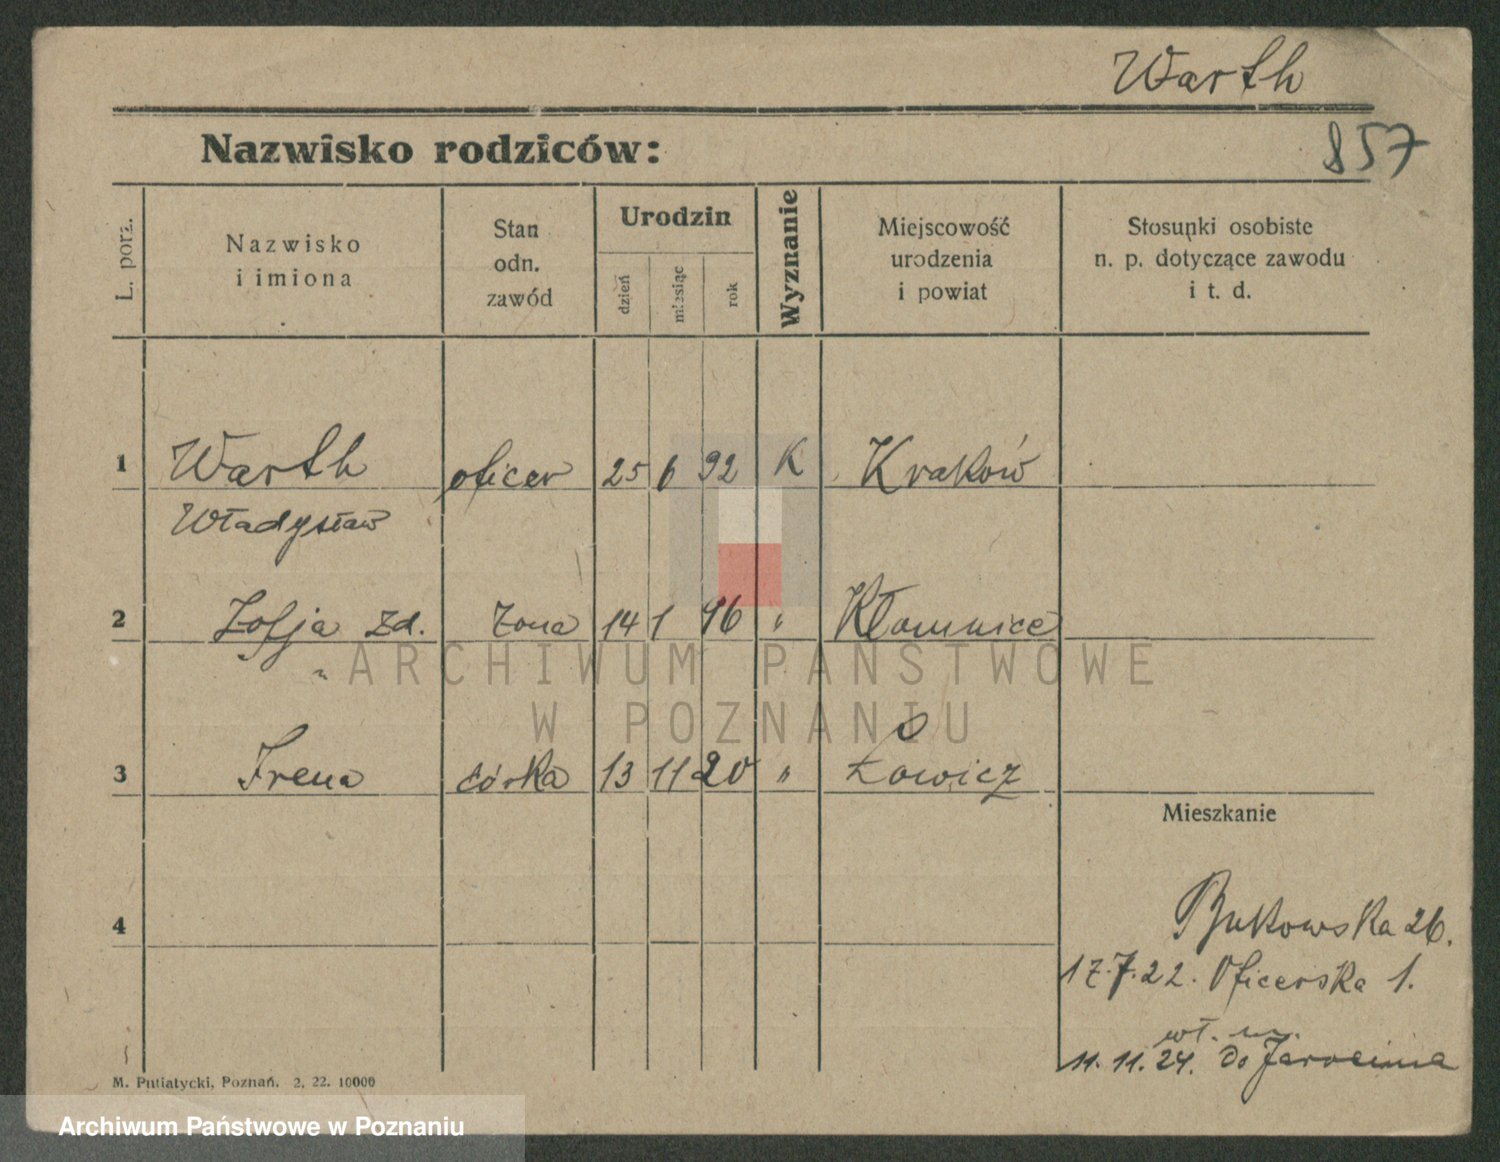 Warth
857
Nazwisko rodziców:
L. porz.
Nazwisko
i imiona
Stan
odn.
zawód
Urodzin
dzień
miesiąc
rok
Wyznanie
Miejscowość
urodzenia
i powiat
Stosunki osobiste
n. p. dotyczące zawodu
i t. d.
1 Warth oficer 25 6 92 K Kraków
Władysław
2 Zofja zd. żona 14 1 96 " Kłomnice
"
ARCHIWUM PAŃSTWOWE
W POZNANIU
3 Irena córka 13 11 20 " Łowicz
Mieszkanie
4
Bukowska 26.
17.7.22. Oficerska 1.
11.11.24. do Jarocina
M. Putiatycki, Poznań. 2. 22. 10000
Archiwum Państwowe w Poznaniu